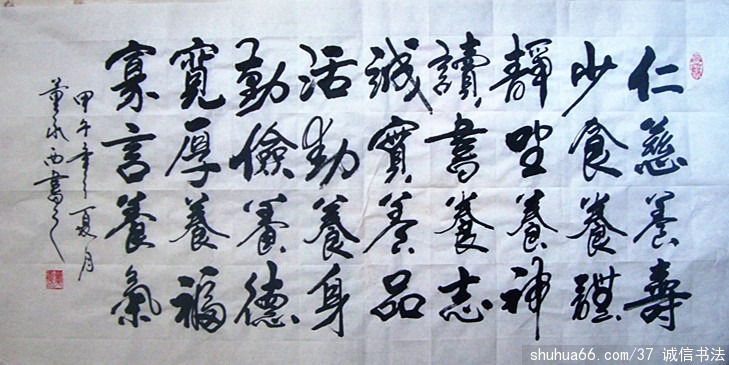 仁慈養壽
少食養體
靜坐養神
讀書養志
誠實養品
活動養身
勤儉養德
寬厚養福
寡言養氣
甲午年之夏月
董永西書之
shuhua66.com/37 诚信书法